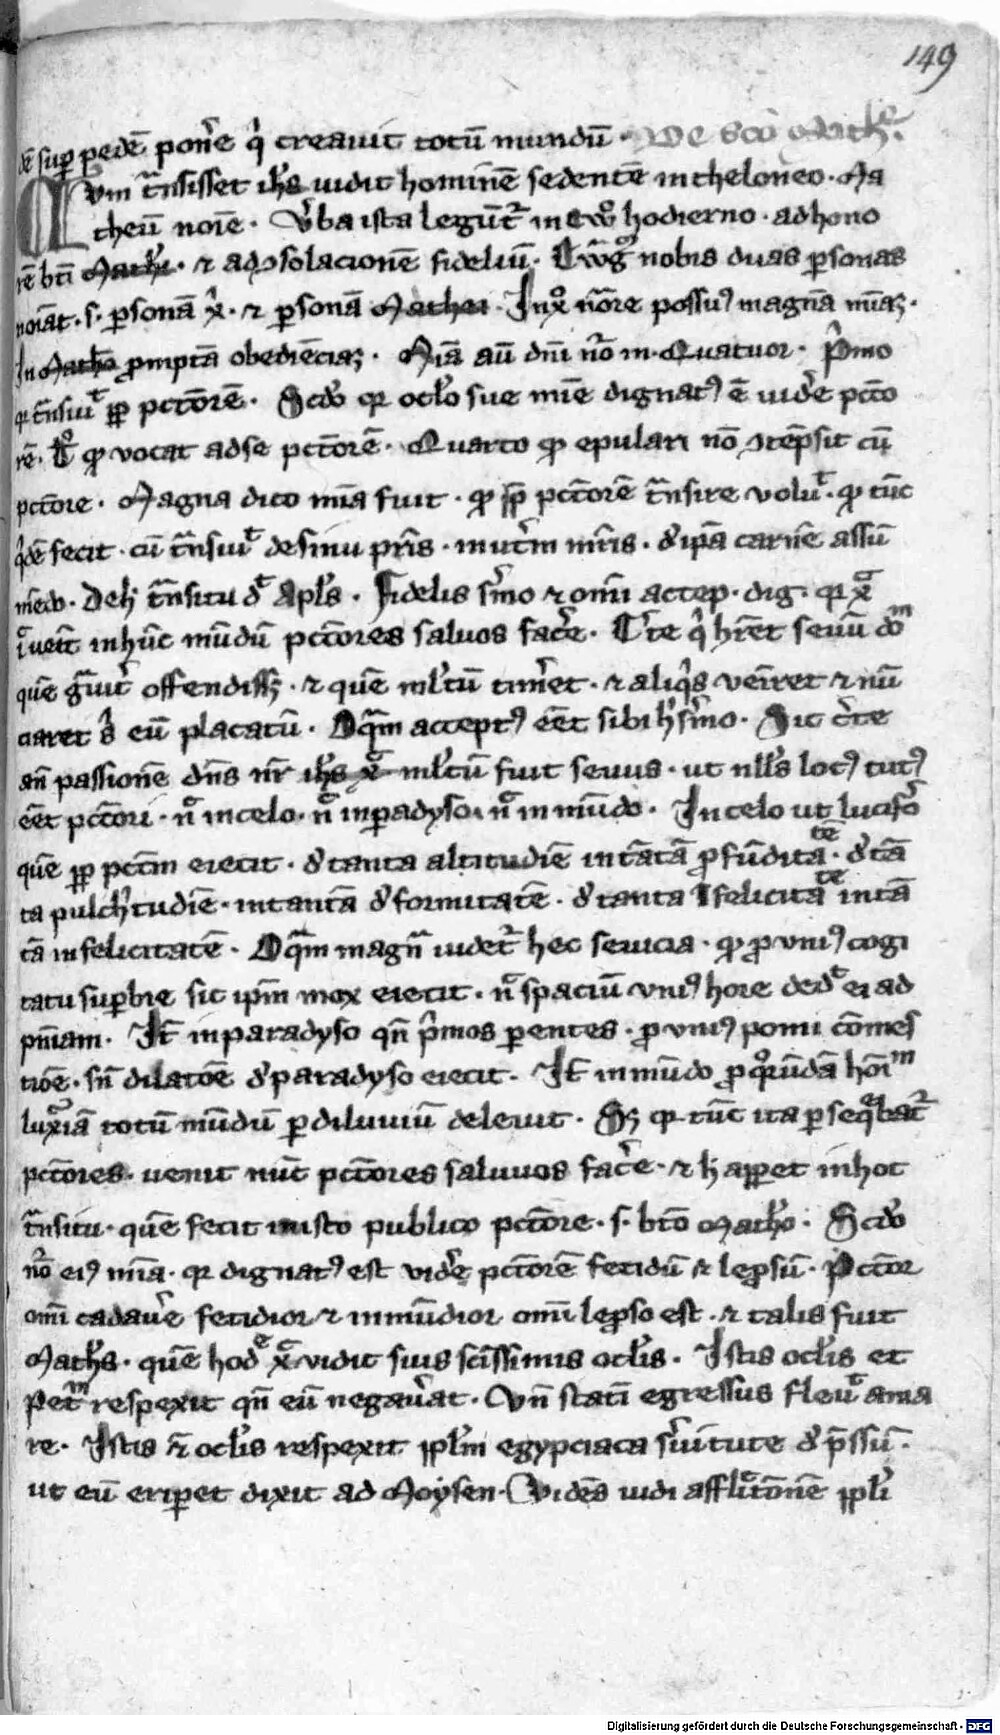 149
dē suꝑ pedē pon̄e q̇ creauit totū mundū · De sc̄o Mathe͛.
Cvm t̄nsisset ih̄s uidit hominē sedentē in theloneo · Ma
theū noīe · v̄ba ista legūt͛ in ewº hodierno · ad hono
rē bt̄i Mathei · ⁊ ad ꝯsolacionē fidelіū · Ewāgº nobis duas ꝑsonas
noīat · s · ꝑsonā x͛ · ⁊ ꝑsonā Mathei · In xº n̄ore possum᷒ magnā mīaꝫ ·
In Math̄o ꝓmptā obediēciaꝫ · Mīā aū dn̄i nō in · Quatuor · P̄mo
qꝛ t̄nsiuͭ ꝓp̄ pctōrē · Scd̄o qꝛ ocl̄o sue mīe dignat᷒ ē uid̄e pctō
rē · Tº qꝛ vocat ad se pctōrē · Quarto qꝛ epulari nō ꝯtēpsit cū
pctōre · Magna dico mīa fuit · qꝛ ꝓp̄ pctōrē t̄nsire voluͭ · qꝛ tūc
q̇dē fecit · cū t̄nsiuͭ de sinu pr̄is · in ut̄m mr̄is · ⁊ ip̄ā carnē assū
mēdo · De h͛ t̄nsitu dͭ Apl̄s · Fidelis s̄mo ⁊ omī accep · dig · qꝛ xᷓ
uēit in hūc mūdū pctōres saluos fac̄e · C̄te q̇ hr̄et seuū dom̄
quē g̃uit͛ offendissꝫ · ⁊ quē ml̄tū tim̄et · ⁊ aliq̇s veīret ⁊ nū
ciaret ẜ eū placatū · O qᷓm accept᷒ eēt sibi h᷒ s̄mo · Sic c̄te
an̄ passionē dn̄s nr̄ ih̄s xᷓ ml̄tū fuit seuus · ut nll̄s loc᷒ tut᷒
eēt pctōri · nᷓ in celo · nᷓ in ꝑadyso · nᷓ in mūdo · In celo ut lucif̄o
quē ꝓp̄ pctm̄ eiecit · ⁊ tanta altitudīe in tātā ꝓfūditatē · ⁊ tā
ta pulch͛tudīe · in tantā ⁊formitatē · ⁊ tanta felicitate in tā
tā infelicitatē · O qᷓm magnᷓ uidet͛ hec seuicia · qꝛ ꝓ vni᷒ cogi
tatu suꝑbie sic ip̄m mox eiecit · nᷓ spaciū vni᷒ hore dedͭ ei ad
pn̄iam · It̄ in paradyso qn̄ p̄mos ꝑentes · ꝓ vni᷒ pomi cōmes
tiōe · sn̄ dilatōe ⁊ paradyso eiecit · It̄ in mūdo ꝓ qºrūdā hoīm
luxᷓiā totū mūdū ꝑ diluuiū deleuit · Sꝫ qꝛ tūc ita ꝑseqᷓbat͛
pctōres · uenit nūc pctōres saluuos fac̄e · ⁊ h͛ apꝑet in hoc
t̄nsitu · quē fecit in isto publico pctōre · s · bt̄o Math̄o · Scd̄o
nō ei᷒ mīa · qꝛ dignat᷒ est vid̄e pctōrē fetidū ⁊ lep̄sū · Pctōr
omī cadau̅e fetidior ⁊ inmūdior omī lep̄so est · ⁊ talis fuit
Math̄s · quē hodͤ xᷓ vidit suis sc̄issimis ocl̄is · Istis ocl̄is et
Petm̄ respexit qn̄ eū negau̅at · Vn̄ statī egressus fleuͭ ama
re · Istis ⁊ ocl̄is respexit ppl̄m egypciaca s̄uitute ⁊ p̄ssū ·
ut eū eriꝑet dixit ad Moysen · Vidēs uidi afflictōnē ppl̄i
Digitalisierung gefördert durch die Deutsche Forschungsgemeinschaft - DFG